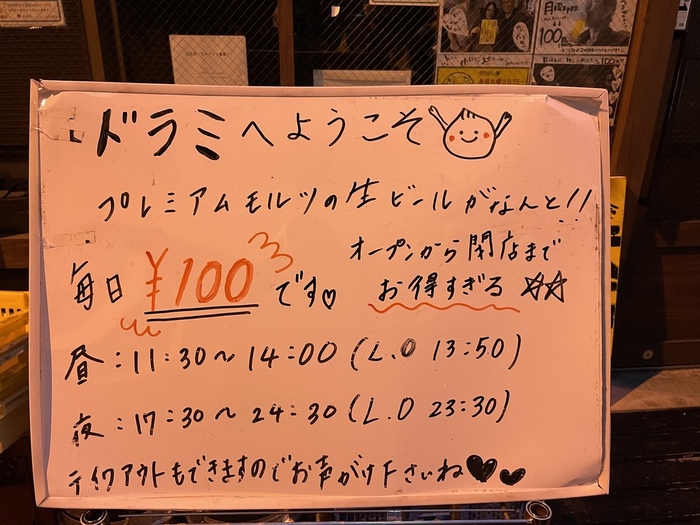 ドラミへようこそ
プレミアムモルツの生ビールがなんと!!
毎日 ¥100 です♡
オープンから閉店まで
お得すぎる ☆☆
昼:11:30〜14:00(L.O 13:50)
夜:17:30〜24:30(L.O 23:30)
テイクアウトもできますのでお声がけ下さいね♥♥
100円